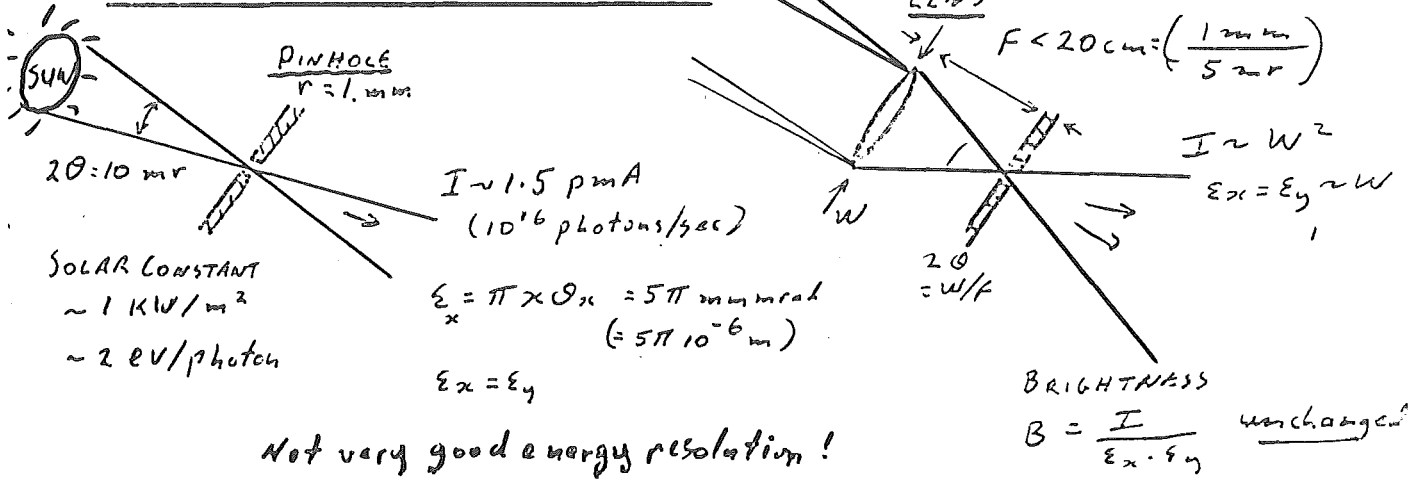 SUN
PINHOLE
r = 1. mm
2θ = 10 mr
I ~ 1.5 pmA
(10¹⁶ photons/sec)
SOLAR CONSTANT
~ 1 KW/m²
~ 2 eV/photon
Ɛx = π x θx = 5π mm mrad
(= 5π 10⁻⁶ m)
Ɛx = Ɛy
Not very good energy resolution!
LENS
F < 20 cm = (1 mm / 5 mr)
W
2θ
= W/F
I ~ W²
Ɛx = Ɛy ~ W
BRIGHTNESS
B = I / Ɛx · Ɛy unchanged